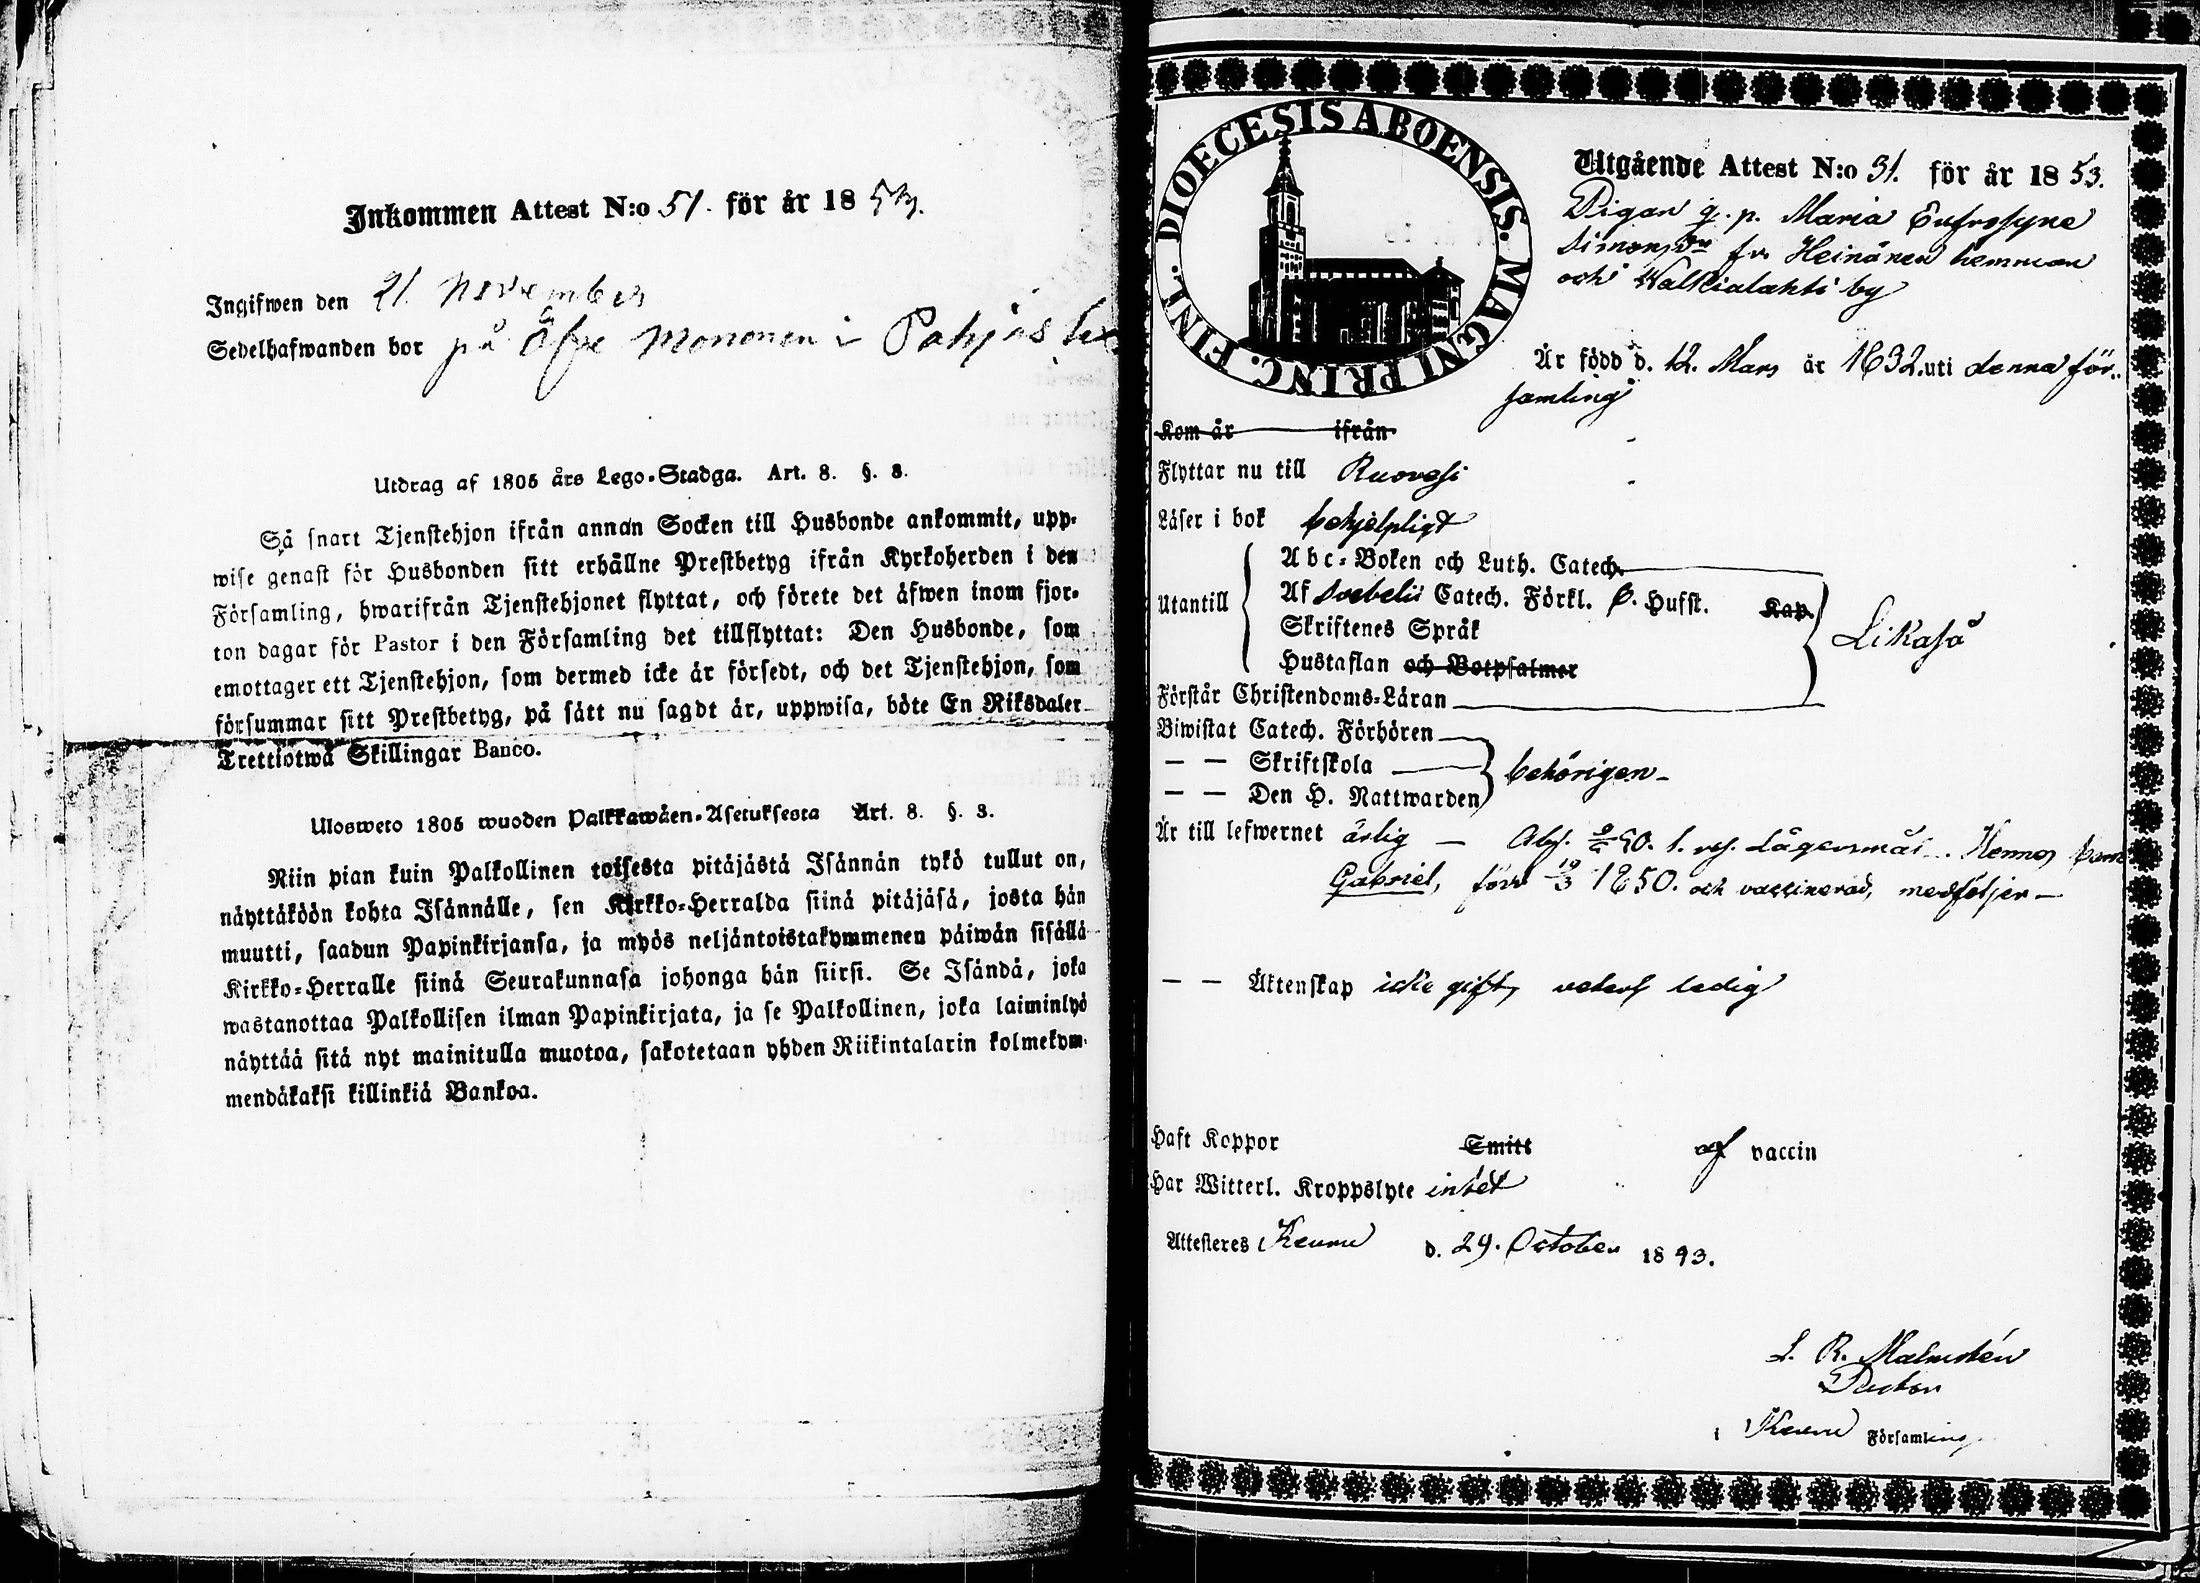 Inkommen Attest N:o 51. för år 1853.
Ingifwen den 21 November
Sedelhafwanden bor på Öfre Mononen i Pohjas
Utdrag af 1805 års Lego-Stadga. Art. 8. §. 3.
Så snart Tjenstehjon ifrån annan Socken till Husbonde ankommit, upp-
wise genast för Husbonden sitt erhållne Prestbetyg ifrån Kyrkoherden i den
Församling, hwarifrån Tjenstehjonet flyttat, och förete det äfwen inom fjor-
ton dagar för Pastor i den Församling det tillflyttat: Den Husbonde, som
emottager ett Tjenstehjon, som dermed icke är försedt, och det Tjenstehjon, som
försummar sitt Prestbetyg, på sätt nu sagdt är, uppwisa, böte En Riksdaler
Trettiotwå Skillingar Banco.
Ulosweto 1805 wuoden Palkkawäen-Asetuksesta Art. 8. §. 3.
Niin pian kuin Palkollinen toisesta pitäjästä Isännän tykö tullut on,
näyttäköön kohta Isännälle, sen Kirkko-Herralda siinä pitäjäsä, josta hän
muutti, saadun Papinkirjansa, ja myös neljäntoistakymmenen päiwän sisällä
Kirkko-Herralle siinä Seurakunnasa johonga hän siirsi. Se Isändä, joka
wastanottaa Palkollisen ilman Papinkirjata, ja se Palkollinen, joka laiminlyö
näyttää sitä nyt mainitulla muotoa, sakotetaan yhden Riikintalarin kolmekym-
mendäkaksi killinkiä Bankoa.
DIOECESIS ABOENSIS. MAGNI PRINC. FINL.
Utgående Attest N:o 31. för år 1853.
Pigan q. p. Maria Eufrosyne
Simonsdr fr. Heinänen hemman
och Walkialahti by
Är född d. 12. Mars år 1832. uti denna för-
samling
Kom år ifrån
Flyttar nu till Ruovesi
Läser i bok behjelpligt
Utantill
Abc-Boken och Luth. Catech.
Af Svebelii Catech. Förkl. Hufst. Kap.
Skriftenes Språk
Hustaflan och Botpsalmer
Likaså
Förstår Christendoms-Läran
Biwistat Catech. Förhören
— — Skriftskola
— — Den H. Nattwarden
behörigen
Är till lefwernet ärlig — Abs. 50. 1. res. Lägersmål. Hennes barn
Gabriel, född 19/3 1850. och vaccinerad, medföljer —
— — Äktenskap icke gift, veterl. ledig
Haft Koppor Smitt af vaccin
Har Witterl. Kroppslyte intet
Attesteres Keuru d. 29. October 1853.
L. R. Malmstén
Pastor
i Keuru Församling